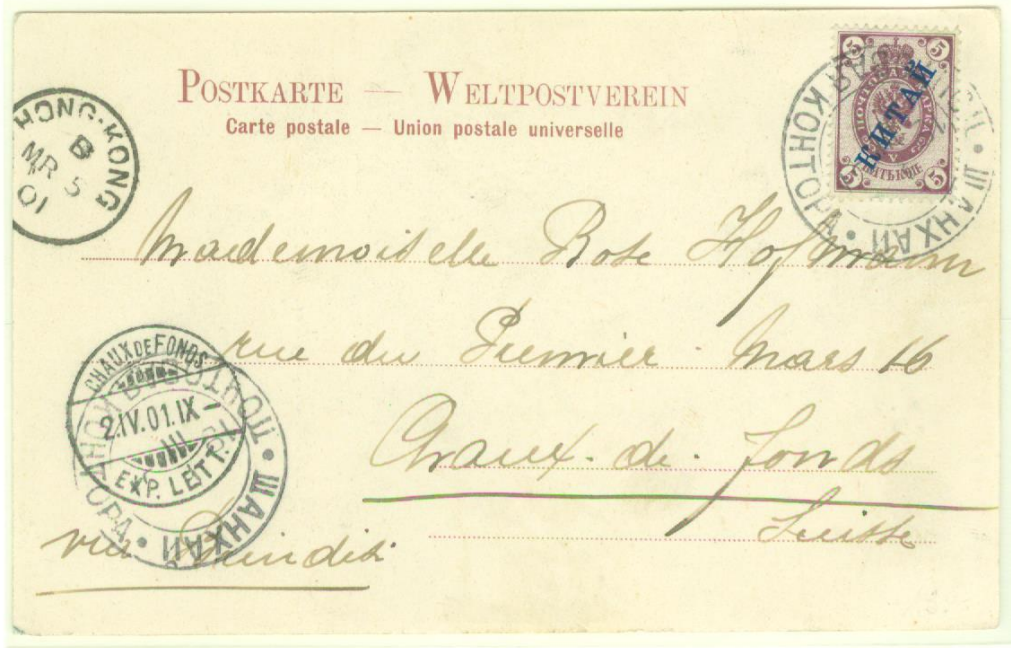 POSTKARTE — WELTPOSTVEREIN
Carte postale — Union postale universelle
5 5
ПОЧТОВАЯ МАРКА
КИТАЙ
5 5
КОНТОРА • ШАНХАЙ •
HONG-KONG
B
MR 5
01
Mademoiselle Rose Hofmann
rue du Premier-Mars 16
Chaux-de-fonds
Suisse
CHAUX DE FONDS
2.IV.01.IX-
EXP. LETT.
ПОЧТОВАЯ КОНТОРА • ШАНХАЙ •
via Brindisi